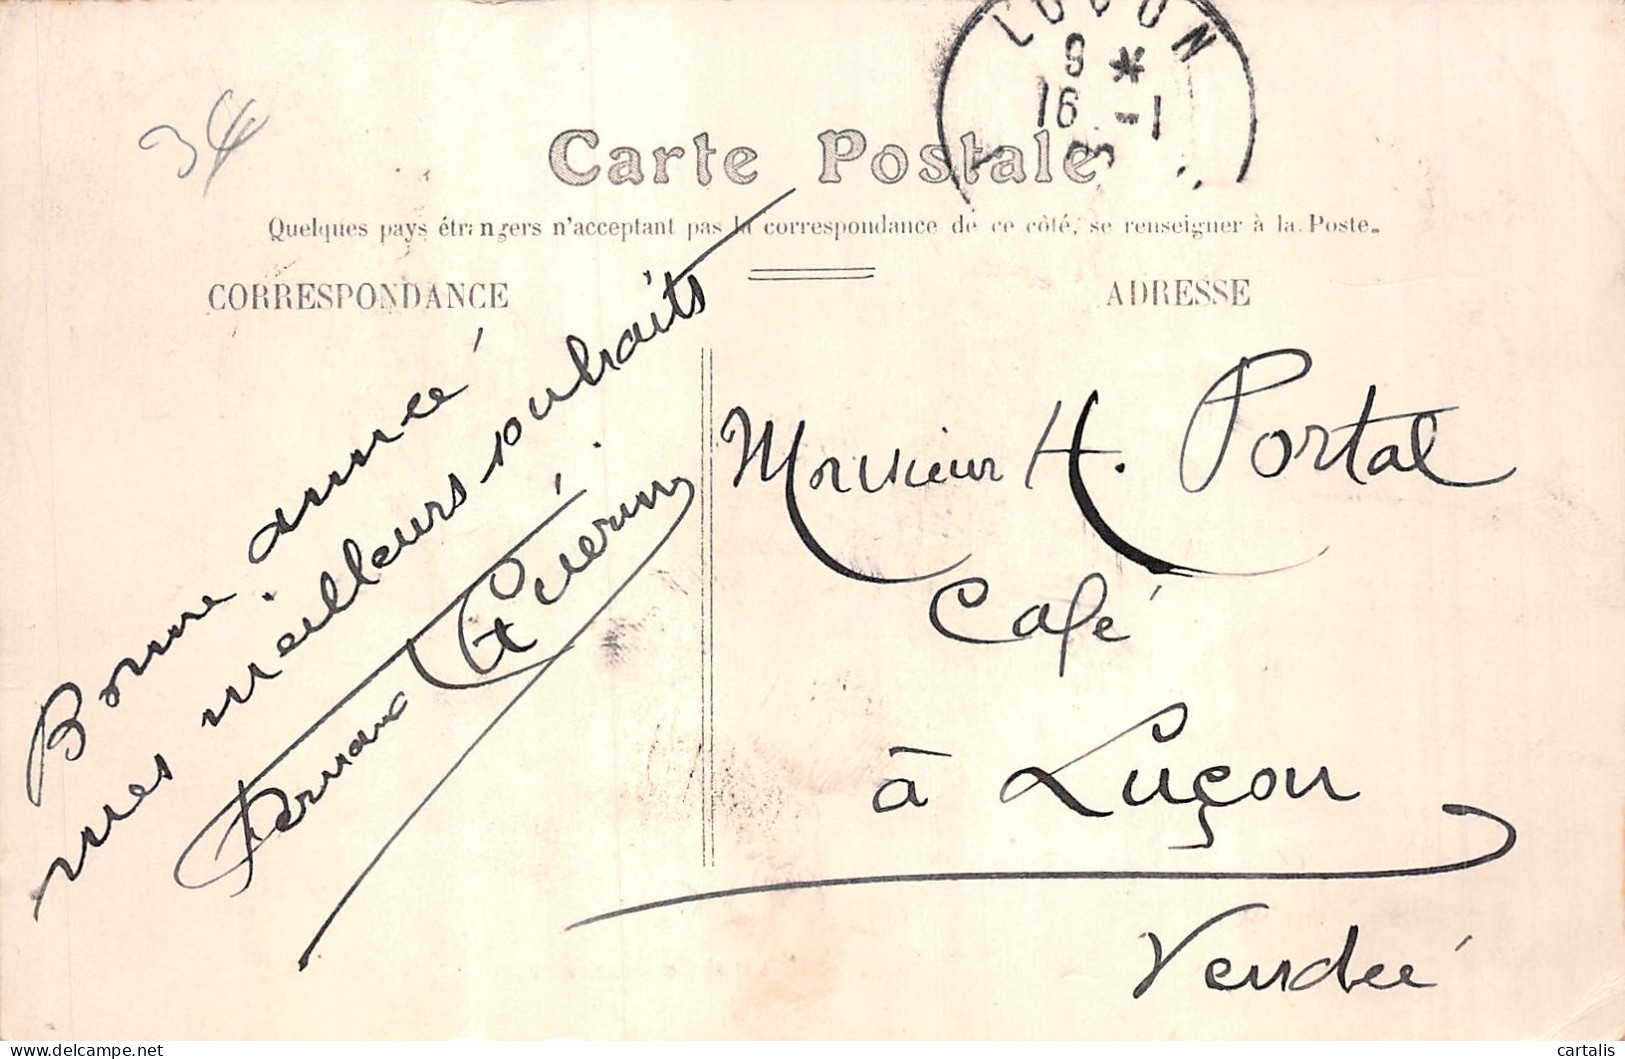 34
LUÇON
9 *
16 -1
Carte Postale
Quelques pays étrangers n'acceptent pas la correspondance de ce côté, se renseigner à la Poste.
CORRESPONDANCE
Bonne année
mes meilleurs souhaits
Fernand Guérin
ADRESSE
Monsieur H. Portal
Café
à Luçon
Vendée
delcampe.net
cartalis